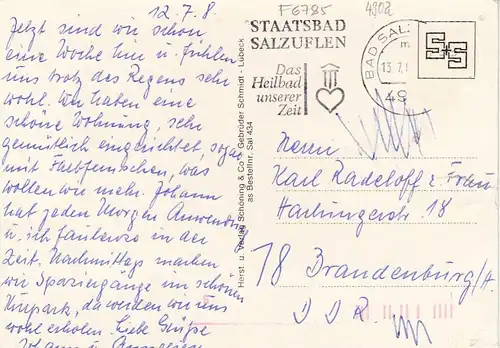 12.7.8.
Jetzt sind wir schon
eine Woche hier u. fühlen
uns trotz des Regens sehr
wohl. Wir haben eine
schöne Wohnung, sehr
gemütlich eingerichtet, sogar
mit Farbfernsehen, was
wollen wir mehr. Johann
hat jeden Morgen Anwendung
u. ich faulenze in der
Zeit. Nachmittags machen
wir Spaziergänge im schönen
Kurpark, da werden wir uns
wohl erholen. Liebe Grüße
Johann u.
Herst. u. Verlag Schöning & Co + Gebrüder Schmidt - Lübeck
as Bestellnr. Sal 434
F6785
4902
STAATSBAD
SALZUFLEN
Das
Heilbad
unserer
Zeit
BAD SAL
13.7.
49
Herrn
Karl Radeloff u. Frau
Harlungerstr. 18
18 Brandenburg/H.
DDR.